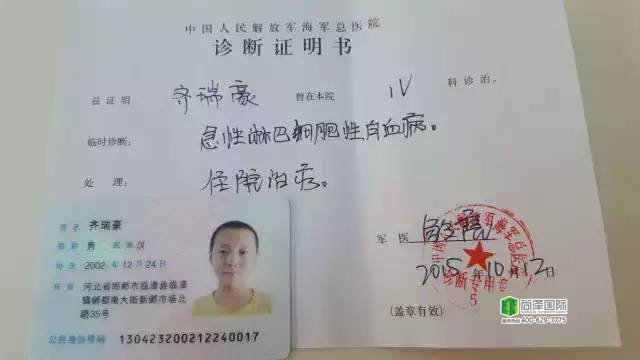 中国人民解放军海军总医院
诊断证明书
兹证明 齐瑞豪 曾在本院 IV 科诊治。
临时诊断： 急性淋巴细胞性白血病。
处 理： 住院治疗。
军 医
2015年10月12日
诊断专用章
5
(盖章有效)
姓名 齐瑞豪
性别 男 民族 汉
出生 2002 年 12 月 24 日
住址 河北省邯郸市临漳县临漳
镇邺都南大街新邺市场北
路35号
公民身份号码 130423200212240017
尚泽国际
400-629-7775